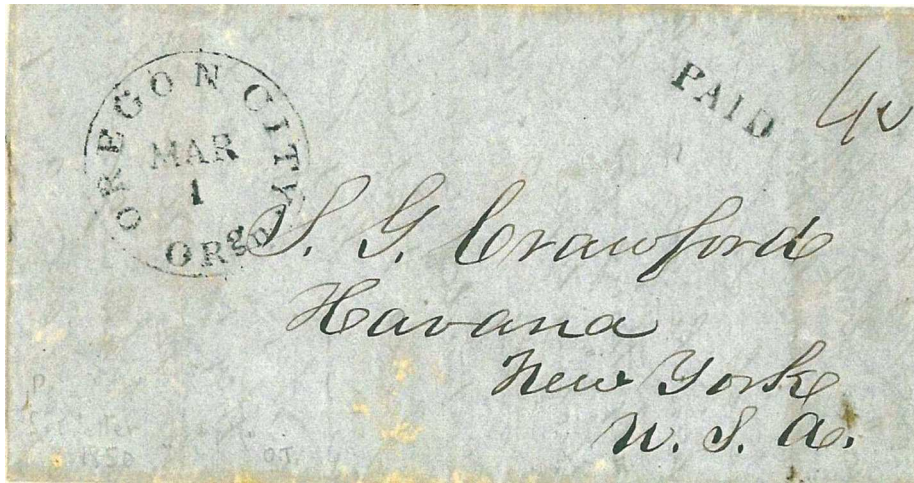 OREGON CITY
MAR
1
ORgon
PAID 40
S. G. Crawford
Havana
New York
U. S. A.
1850
O.T.